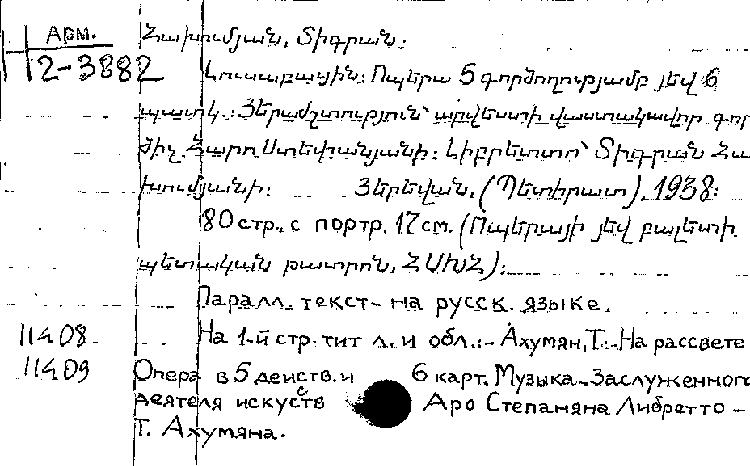 Арм.
12-3882
Հախումյան, Տիգրան:
Լուսաբացին: Ոպերա 5 գործողությամբ յեվ 6
պատկ.: Յերաժշտություն՝ արվեստի վաստակավոր գոր
ծիչ Հարո Ստեփանյանի: Լիբրետտո՝ Տիգրան Հա
խումյանի: Յերեվան, (Պետհրատ), 1938:
80 стр. с портр. 17 см. (Ոպերայի յեվ բալետի
պետական թատրոն, ՀՍԽՀ):
Паралл. текст - на русск. языке.
11408 На 1-й стр. тит л. и обл.:- Ахумян, Т.-На рассвете
11409 Опера в 5 действ. и 6 карт. Музыка Заслуженного
деятеля искусств Аро Степаняна Либретто -
Т. Ахумяна.